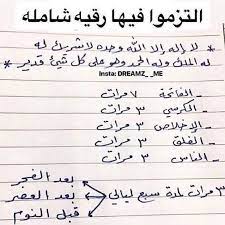 التزموا فيها رقيه شامله
* لا إله إلا الله وحده لا شريك له
له الملك وله الحمد وهو على كل شيئ قدير *
Insta: DREAMZ_._ME
- الفاتحة ٧ مرات
- الكرسي ٣ مرات
- الإخلاص ٣ مرات
- الفلق ٣ مرات
- الناس ٣ مرات
بعد الفجر
٣ مرات لمدة سبع ليالي بعد العصر
قبل النوم